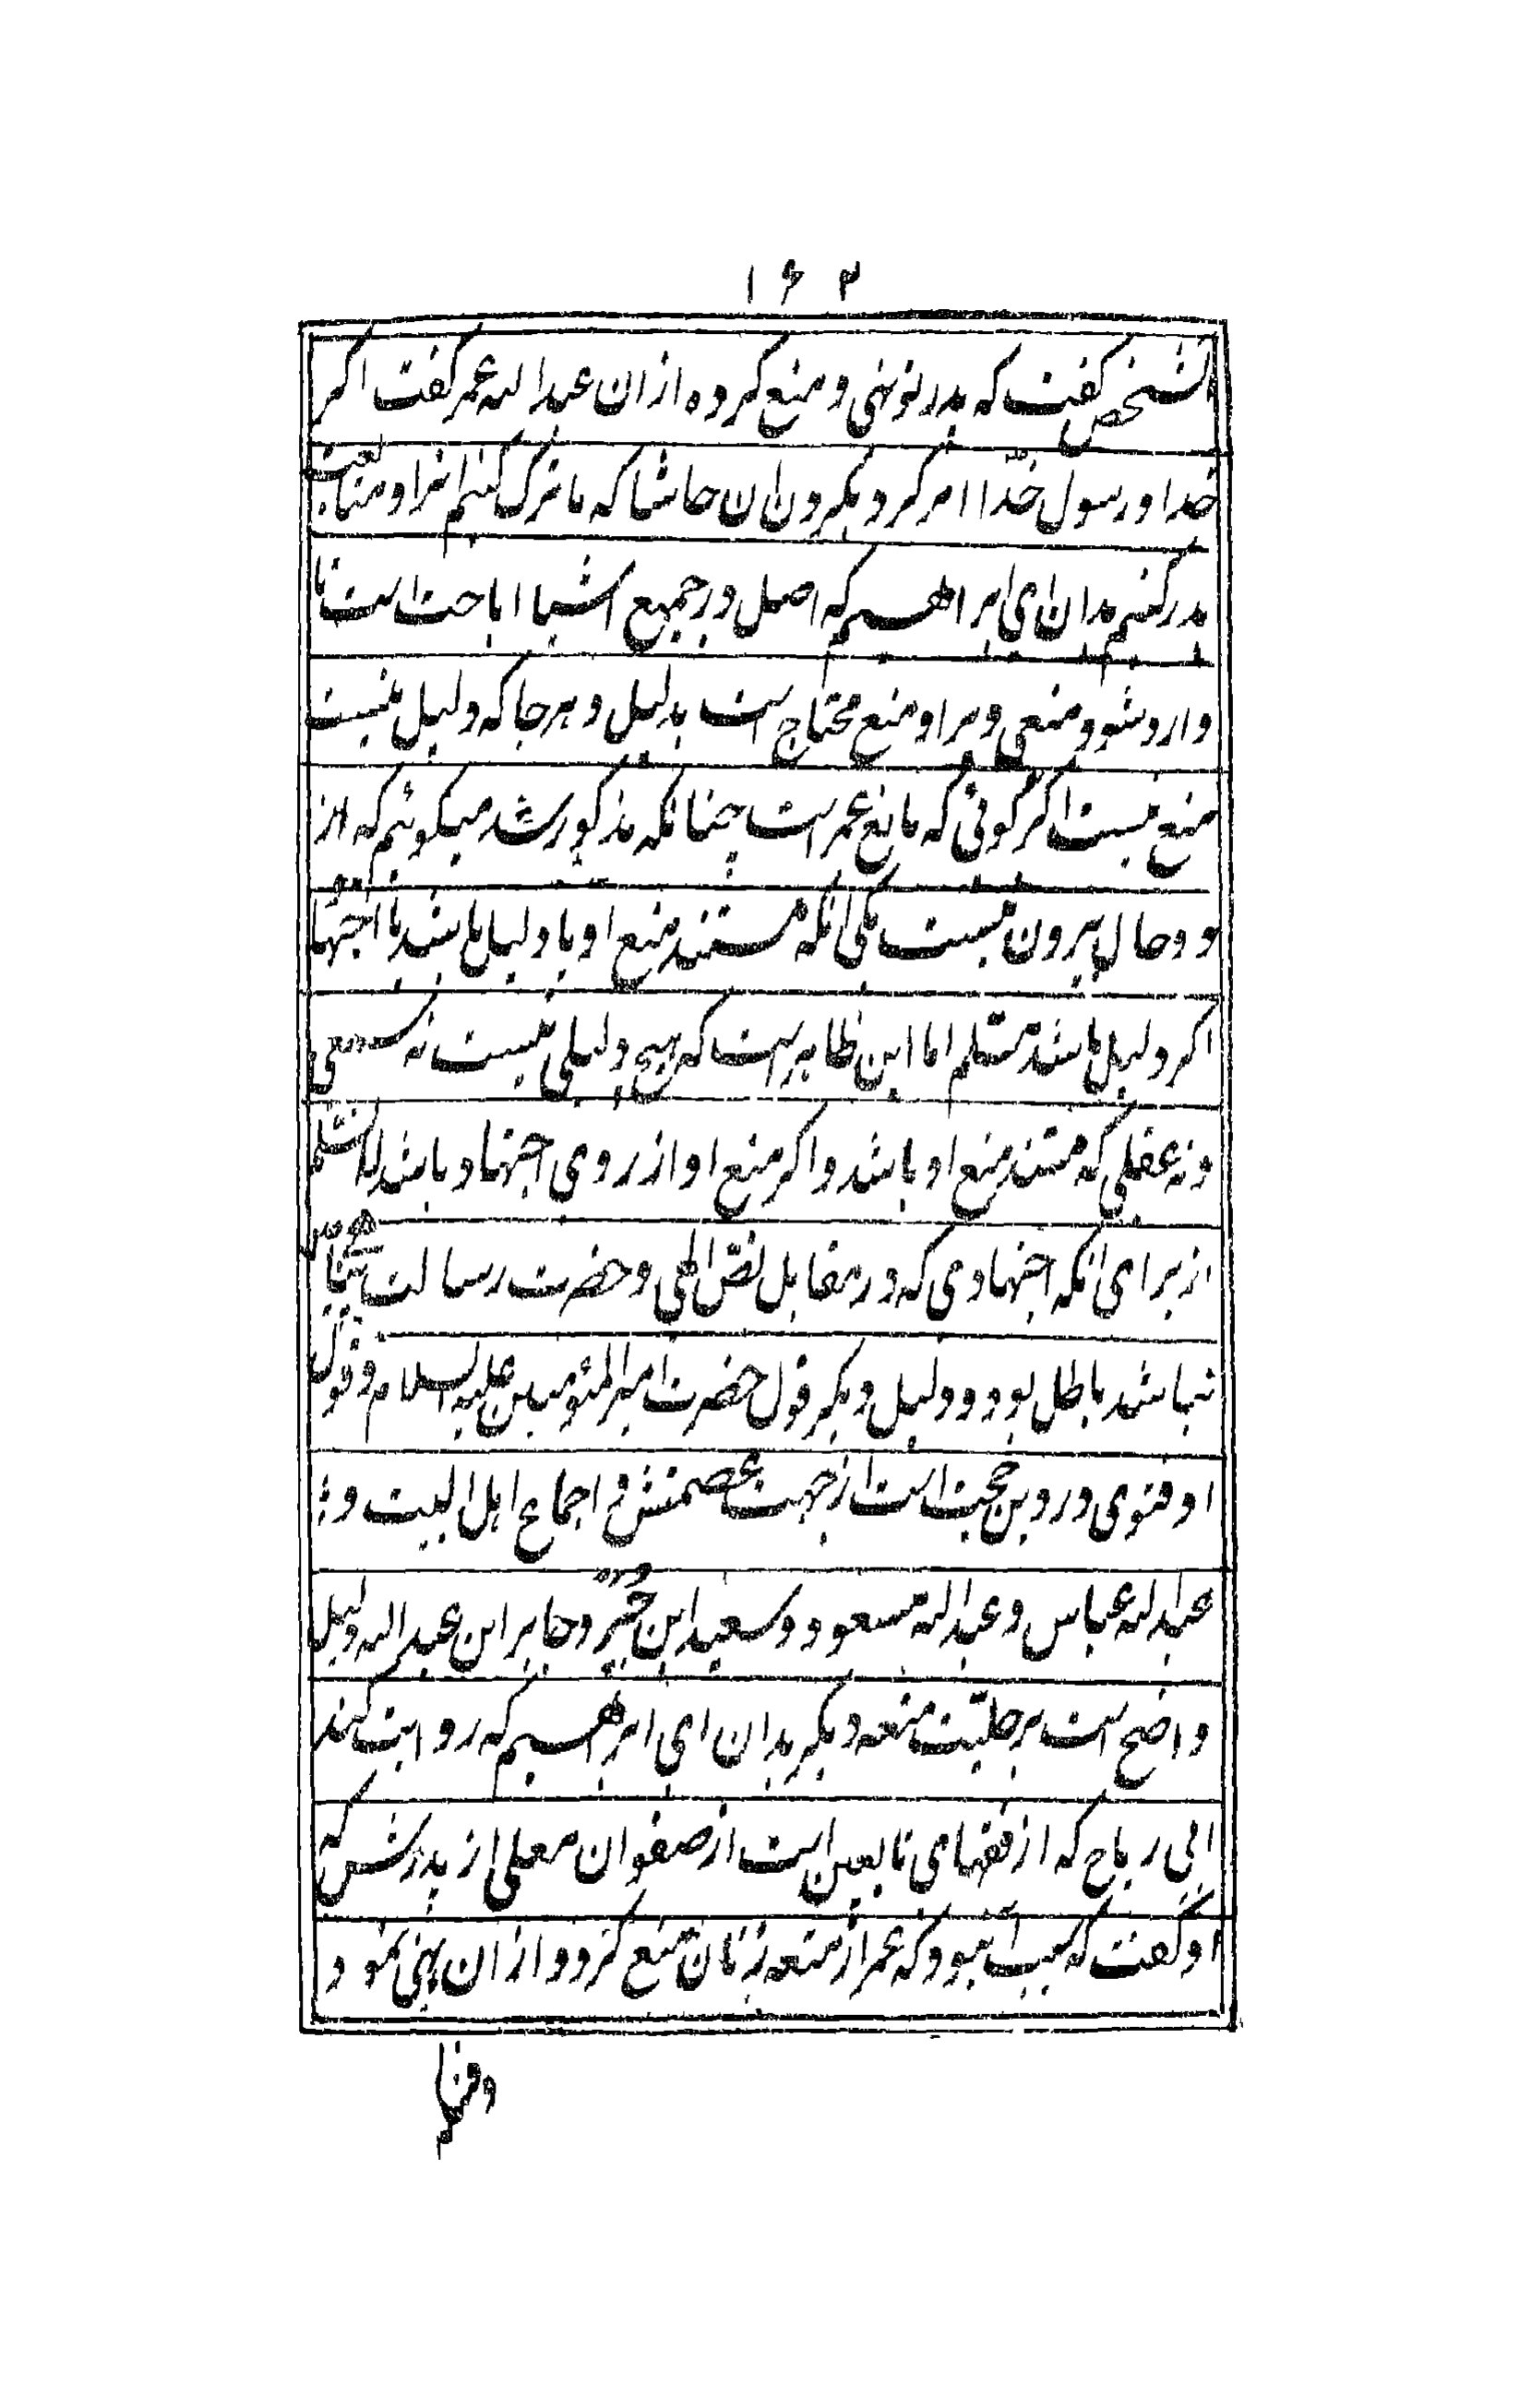 ۱۶۲
انشخص کفت که پدر تو نهی و منع کرده ازان عبدالله عمر کفت اکر
خدا و رسول خدا امر کرد بکردن ان حاشا که ما ترک کنیم انرا و متابعت
پدر کنیم بدان ای ابراهیم که اصل در جمیع اشیا اباحت است تا
وارد شود منعی و مراو منع محتاج است بدلیل و هر جا که دلیل نیست
منع نیست اکر کوئی که مانع عمر است چنانکه مذکور شد میکوئیم که از
دو حال بیرون نیست یکی انکه مستند منع او یا دلیل باشد یا اجتهاد
اکر دلیل باشد مسلم اما این ظاهر است که هیچ دلیلی نیست نه سمعی
و نه عقلی که مستند منع او باشد و اکر منع او از روی اجتهاد باشد لانسلم
از برای انکه اجتهادی که در مقابل نص الهی و حضرت رسالت پناهی
نباشد باطل بود و دلیل دیکر قول حضرت امیرالمؤمنین علیه السلام و قول
او فتوی در دین حجت است از جهت عصمتش و اجماع اهل البیت و
عبدالله عباس و عبدالله مسعود و سعید ابن جبیر و جابر ابن عبدالله دلیل
واضح است بر حلیت متعه دیکر بدان ای ابراهیم که روایت کند
ابی رباح که از فقهای تابعین است از صفوان معلی از پدرش که
او کفت که سبب آن بود که عمر از متعه زنان منع کرد و ازان نهی نمود